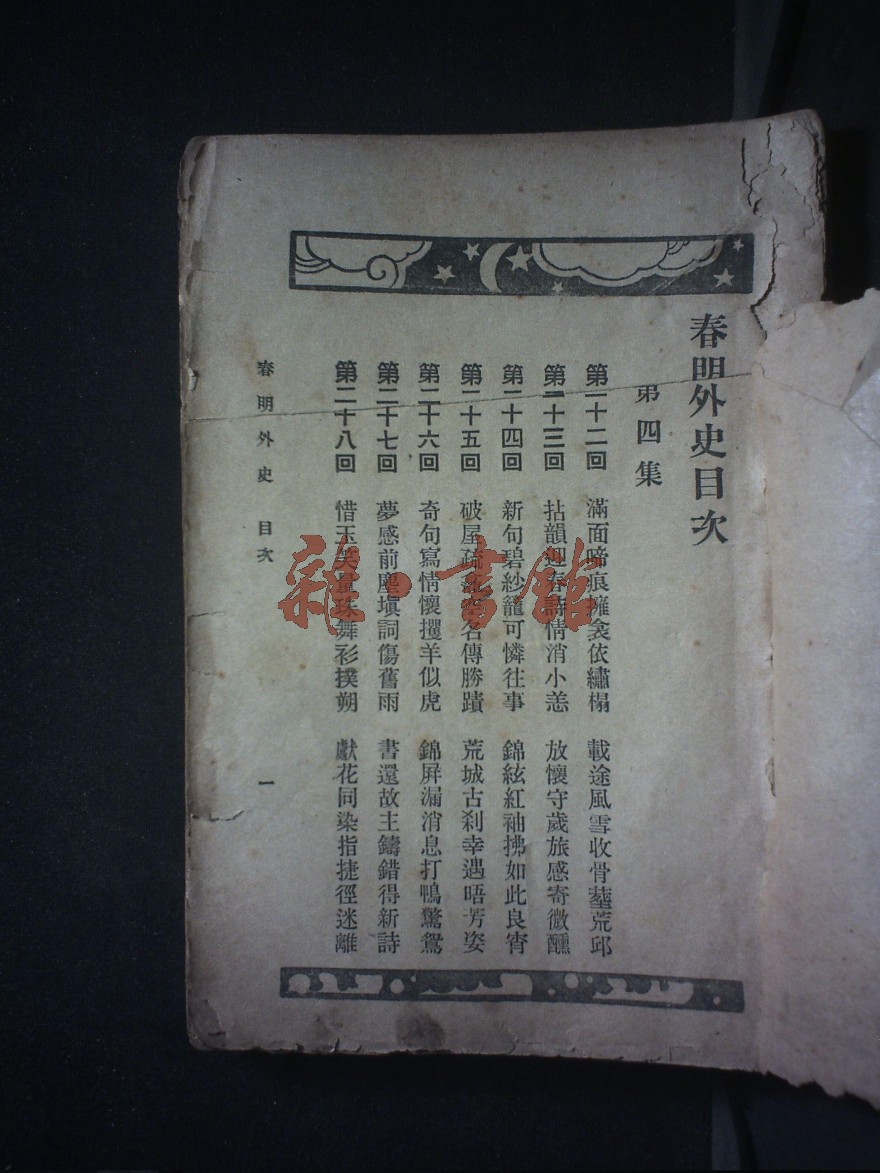 春明外史目次
第四集
第二十二回 滿面啼痕擁衾依繡榻 載途風雪收骨葬荒邱
第二十三回 拈韻迎春詩情消小恙 放懷守歲旅感寄微醺
第二十四回 新句碧紗籠可憐往事 錦絃紅袖拂如此良宵
第二十五回 破屋疏 名傳勝蹟 荒城古刹幸遇晤芳姿
第二十六回 奇句寫情懷攫羊似虎 錦屏漏消息打鴨驚鴛
第二十七回 夢感前塵塡詞傷舊雨 書還故主鑄錯得新詩
第二十八回 惜玉笑量珠舞衫撲朔 獻花同染指捷徑迷離
春明外史 目次
一
雜·書館